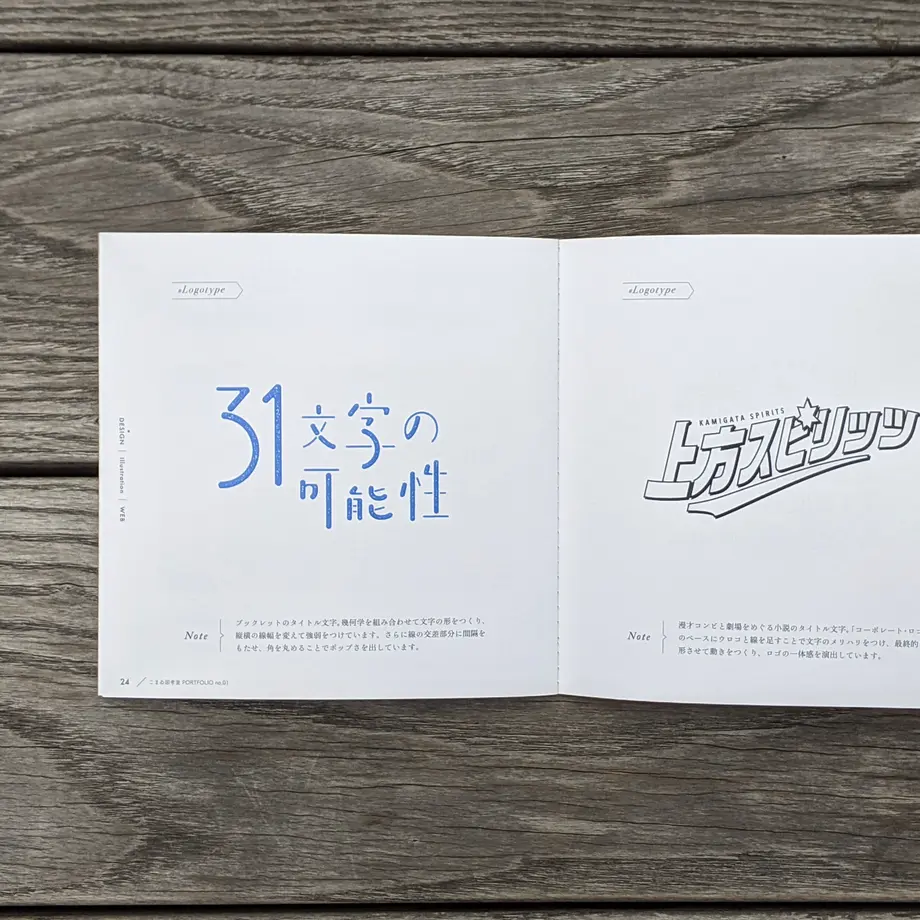 #Logotype
31文字の
可能性
DESIGN | Illustration | WEB
Note
ブックレットのタイトル文字。幾何学を組み合わせて文字の形をつくり、
縦横の線幅を変えて強弱をつけています。さらに線の交差部分に間隔を
もたせ、角を丸めることでポップさを出しています。
24 / PORTFOLIO no.01
#Logotype
KAMIGATA SPIRITS
上方スピリッツ
Note
漫才コンビと劇場をめぐる小説のタイトル文字。「コーポレート・ロゴ
のベースにウロコと線を足すことで文字のメリハリをつけ、最終的
形させて動きをつくり、ロゴの一体感を演出しています。